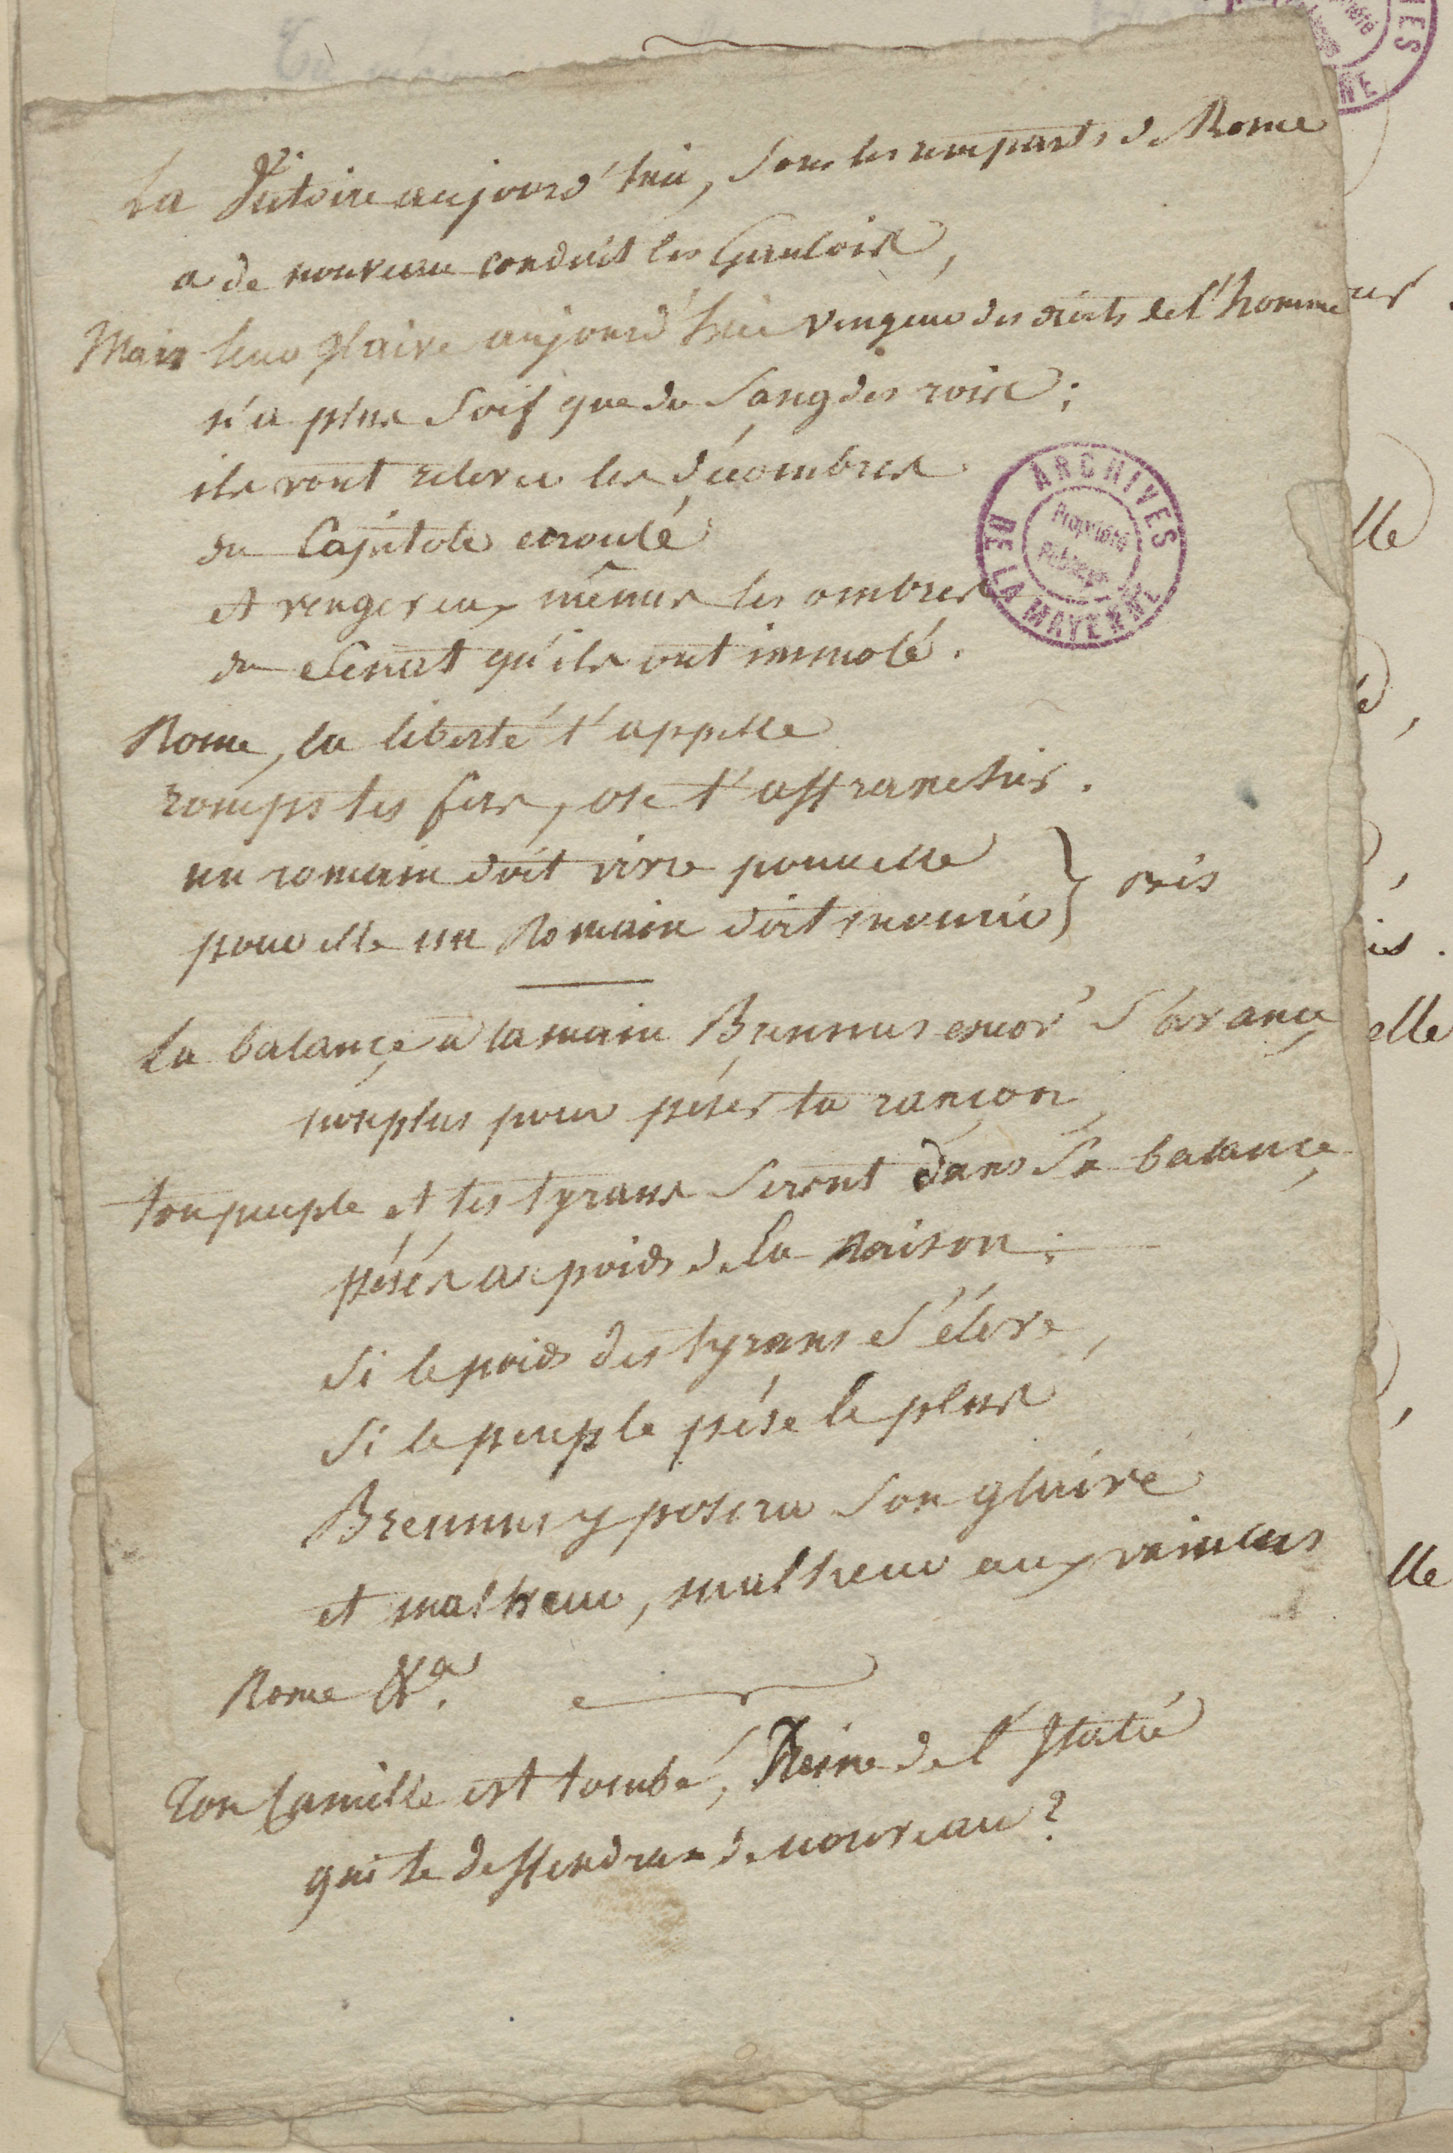 La Victoire aujourd'hui, sous les remparts de Rome
a de nouveau conduit les Gaulois,
Mais leur glaive aujourd'hui vengeur des droits de l'homme
n'a plus soif que du sang des rois;
ils vont relever les décombres
du Capitole écroulé
et venger eux mêmes les ombres
du Senat qu'ils ont immolé.
Rome, la liberté t'appelle
romps tes fers, ose t'affranchir.
un romain doit vivre pour elle
pour elle un Romain doit mourir } bis
La balance à la main Brennus encor' s'avance
non plus pour péser ta rançon,
ton peuple et tes tyrans seront dans sa balance
pésés au poids de la Raison;
Si le poids des tyrans s'éleve,
Si le peuple pése le plus
Brennus y posera son glaive
et malheur, malheur aux vaincus
Rome &a.
Ton Camille est tombé, Reine de l'Italie
qui te deffendra de nouveau?
ARCHIVES DE LA MAYENNE
Propriété
Publique
elle
lle